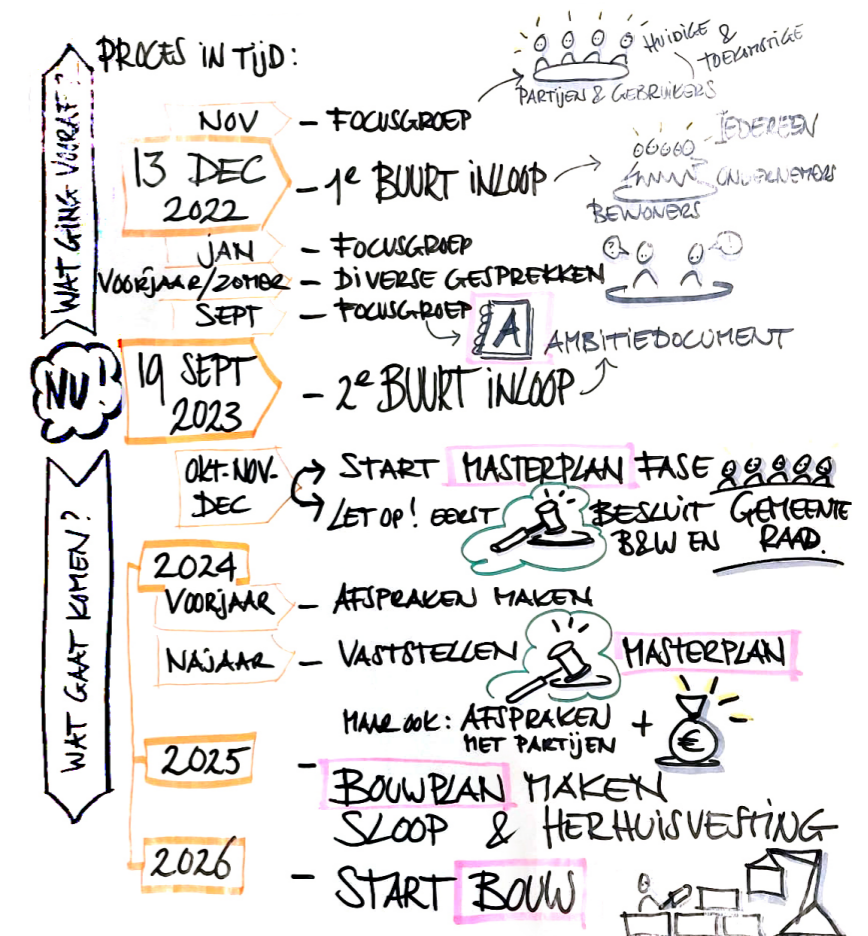 PROCES IN TIJD:
WAT GING VOORAF?
HUIDIGE &
TOEKOMSTIGE
PARTIJEN & GEBRUIKERS
NOV – FOCUSGROEP
13 DEC
2022
– 1e BUURT INLOOP
IEDEREEN
ONDERNEMERS
BEWONERS
JAN – FOCUSGROEP
VOORJAAR/ZOMER – DIVERSE GESPREKKEN
? !
SEPT – FOCUSGROEP
A AMBITIEDOCUMENT
NU!
19 SEPT
2023
– 2e BUURT INLOOP
WAT GAAT KOMEN?
OKT-NOV-
DEC
START MASTERPLAN FASE
LET OP! EERST BESLUIT GEMEENTE
B&W EN RAAD.
2024
VOORJAAR – AFSPRAKEN MAKEN
NAJAAR – VASTSTELLEN MASTERPLAN
MAAR OOK: AFSPRAKEN + €
MET PARTIJEN
2025 – BOUWPLAN MAKEN
SLOOP & HERHUISVESTING
2026 – START BOUW